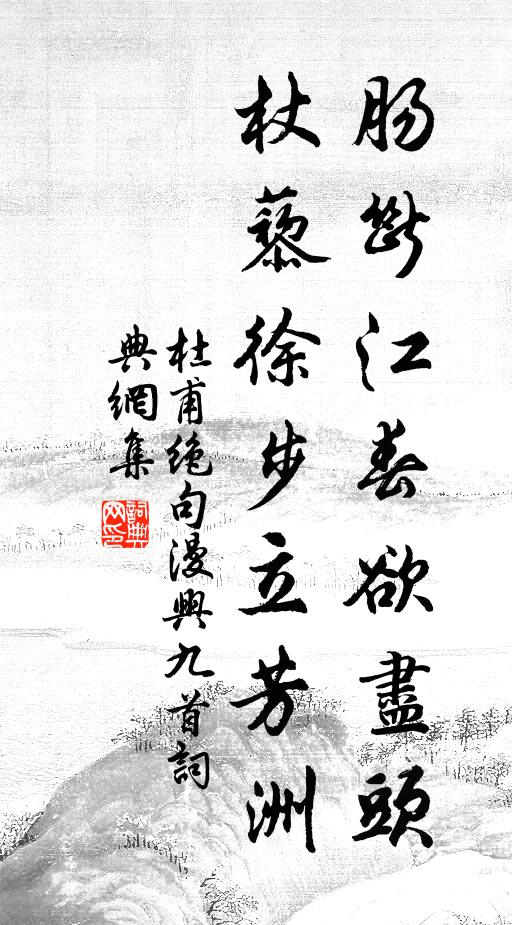 腸斷江春欲盡頭
杖藜徐步立芳洲
杜甫絶句漫興九首詞
典網集
詞典
网印